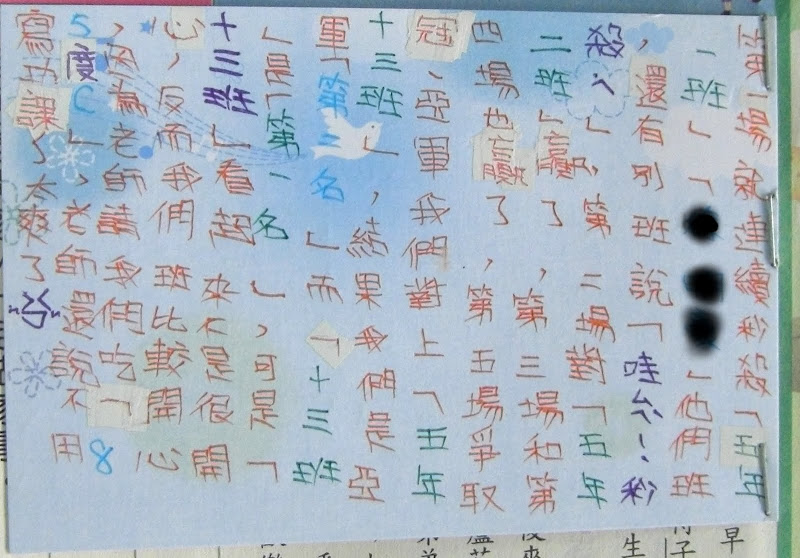 第一場就連續秒殺「五年
一班」「 」他們班
，還有別班說「哇 ！秒
殺ㄟ」，第二場對「五年
二班」贏了，第三場和第
四場也贏了，第五場爭取
冠、亞軍我們對上「五年
十三班」，結果我們是亞
軍「第二名」而「十三班
」是「第一名」，可是「
十三班」看起來不是很開
心，反而我們班比較開心
，因為老師請我們吃「8
5度C」，老師還說不用
寫功課了太爽了